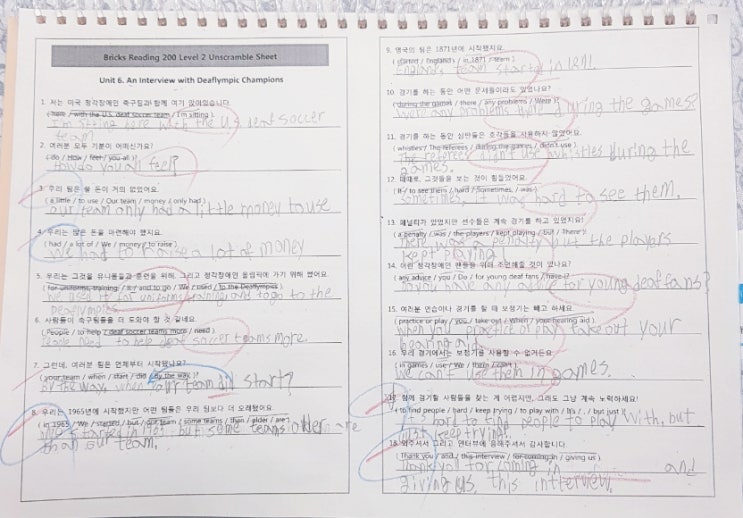 Bricks Reading 200 Level 2 Unscramble Sheet
Unit 6. An Interview with Deaflympic Champions
1. 저는 미국 청각장애인 축구팀과 함께 여기 앉아있습니다.
( here / with the U.S. deaf soccer team / I'm sitting )
I'm sitting here with the U.S. deaf soccer
team.
2. 여러분 모두 기분이 어떠신가요?
( do / How / feel / you all )
How do you all feel?
3. 우리 팀은 쓸 돈이 거의 없었어요.
( a little / to use / Our team / money / only had )
our team only had a little money to use
4. 우리는 많은 돈을 마련해야 했지요.
( had / a lot of / We / money / to raise )
We had to raise a lot of money
5. 우리는 그것을 유니폼들과 훈련을 위해, 그리고 청각장애인 올림픽에 가기 위해 썼어요.
( for uniforms, training / it / and to go / We / used / to the Deaflympics )
We used it for uniforms, training, and to go to the
Deaflympics.
6. 사람들이 축구팀들을 더 도와야 할 것 같네요.
( People / to help / deaf soccer teams more / need )
People need to help deaf soccer teams more.
7. 그런데, 여러분 팀은 언제부터 시작했나요?
( your team / when / start / did / By the way )
By the way, when your team did start?
8. 우리는 1965년에 시작했지만 어떤 팀들은 우리 팀보다 더 오래됐어요.
( in 1965 / We / started / but / our team / some teams / than / older / are )
We started in 1965, but some teams older are
than our team.
9. 영국의 팀은 1871년에 시작했지요.
( started / England's / in 1871 / team )
England's team started in 1871.
10. 경기를 하는 동안 어떤 문제들이라도 있었나요?
( during the games / there / any problems / Were )
Were any problems there during the games?
11. 경기를 하는 동안 심판들은 호각들을 사용하지 않았어요.
( whistles / The referees / during the games / didn't use )
The referees didn't use whistles during the
games.
12. 때때로, 그것들을 보는 것이 힘들었어요.
( it / to see them / hard / Sometimes, / was )
sometimes, it was hard to see them.
13. 페널티가 있었지만 선수들은 계속 경기를 하고 있었지요!
( a penalty / was / the players / kept playing / but / There )
There was a penalty but the players
kept playing.
14. 어린 청각장애인 팬들을 위해 조언해줄 것이 있나요?
( any advice / you / Do / for young deaf fans / have )
Do you have any advice for young deaf fans?
15. 여러분이 연습이나 경기를 할 때 보청기는 빼고 하세요.
( practice or play / you / take out / When / your hearing aid )
When you practice or play, take out your
hearing aid.
16. 우리 경기에서는 보청기를 사용할 수 없거든요.
( in games / use / We / them / can't )
We can't use them in games.
17. 함께 경기할 사람들을 찾는 게 어렵지만, 그래도 그냥 계속 노력하세요!
( to find people / hard / keep trying / to play with / It's / , / but just )
It's hard to find people to play with, but
just keep trying!
18. 와주셔서 그리고 인터뷰에 응해주셔서 감사합니다.
( Thank you / and / this interview / for coming in / giving us )
Thank you for coming in and
giving us, this interview.